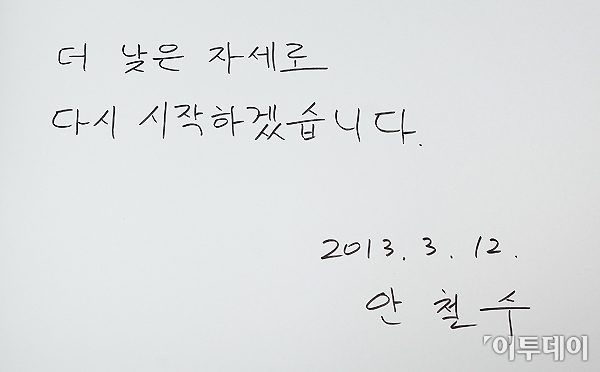 더 낮은 자세로
다시 시작하겠습니다.
2013. 3. 12.
안 철 수
이투데이